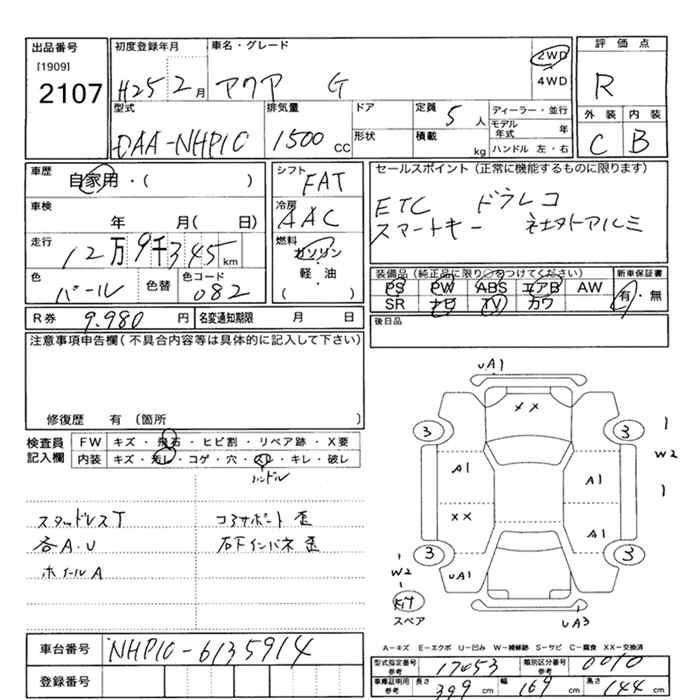 出品番号 初度登録年月 車名・グレード 評価点
[1909] 2107 H25 2月 アクア G 2WD 4WD R
型式 排気量 ドア 定員 5人 ディーラー・並行 外装 内装
DAA-NHP10 1500cc 形状 積載 kg モデル年式 年 C B
ハンドル 左・右
車歴 自家用・( ) シフト FAT セールスポイント(正常に機能するものに限ります)
車検 年 月( 日) 冷房 AAC ETC ドラレコ
スマートキー 社外アルミ
走行 12万9千345km 燃料 ガソリン・軽油 ( )
色 パール 色替 色コード 082
装備品(純正品に限り○をつけてください) 新車保証書
PS PW ABS エアB AW 有・無
SR ナビ TV カワ
R券 9,980円 名変通知期限 月 日 後日品
注意事項申告欄(不具合内容等は具体的に記入して下さい)
修復歴 有(箇所 )
検査員記入欄 FW キズ・飛石・ヒビ割・リペア跡・X要
内装 キズ・汚レ・コゲ・穴・スレ・キレ・破レ
ハンドル
スタッドレスT コアサポート歪
各A.U 右下インパネ歪
ホイールA
uA1
XX
3 3
W2
A1 A1
XX A1
3 3
W2
uA1
スペア
uA3
A=キズ E=エクボ U=凹み W=補修跡 S=サビ C=腐食 XX=交換済
車台番号 NHP10-6135914
登録番号
型式指定番号 参考 17053 類別区分番号 参考 0010
車庫証明用 参考 長さ 399cm 幅 169cm 高さ 144cm